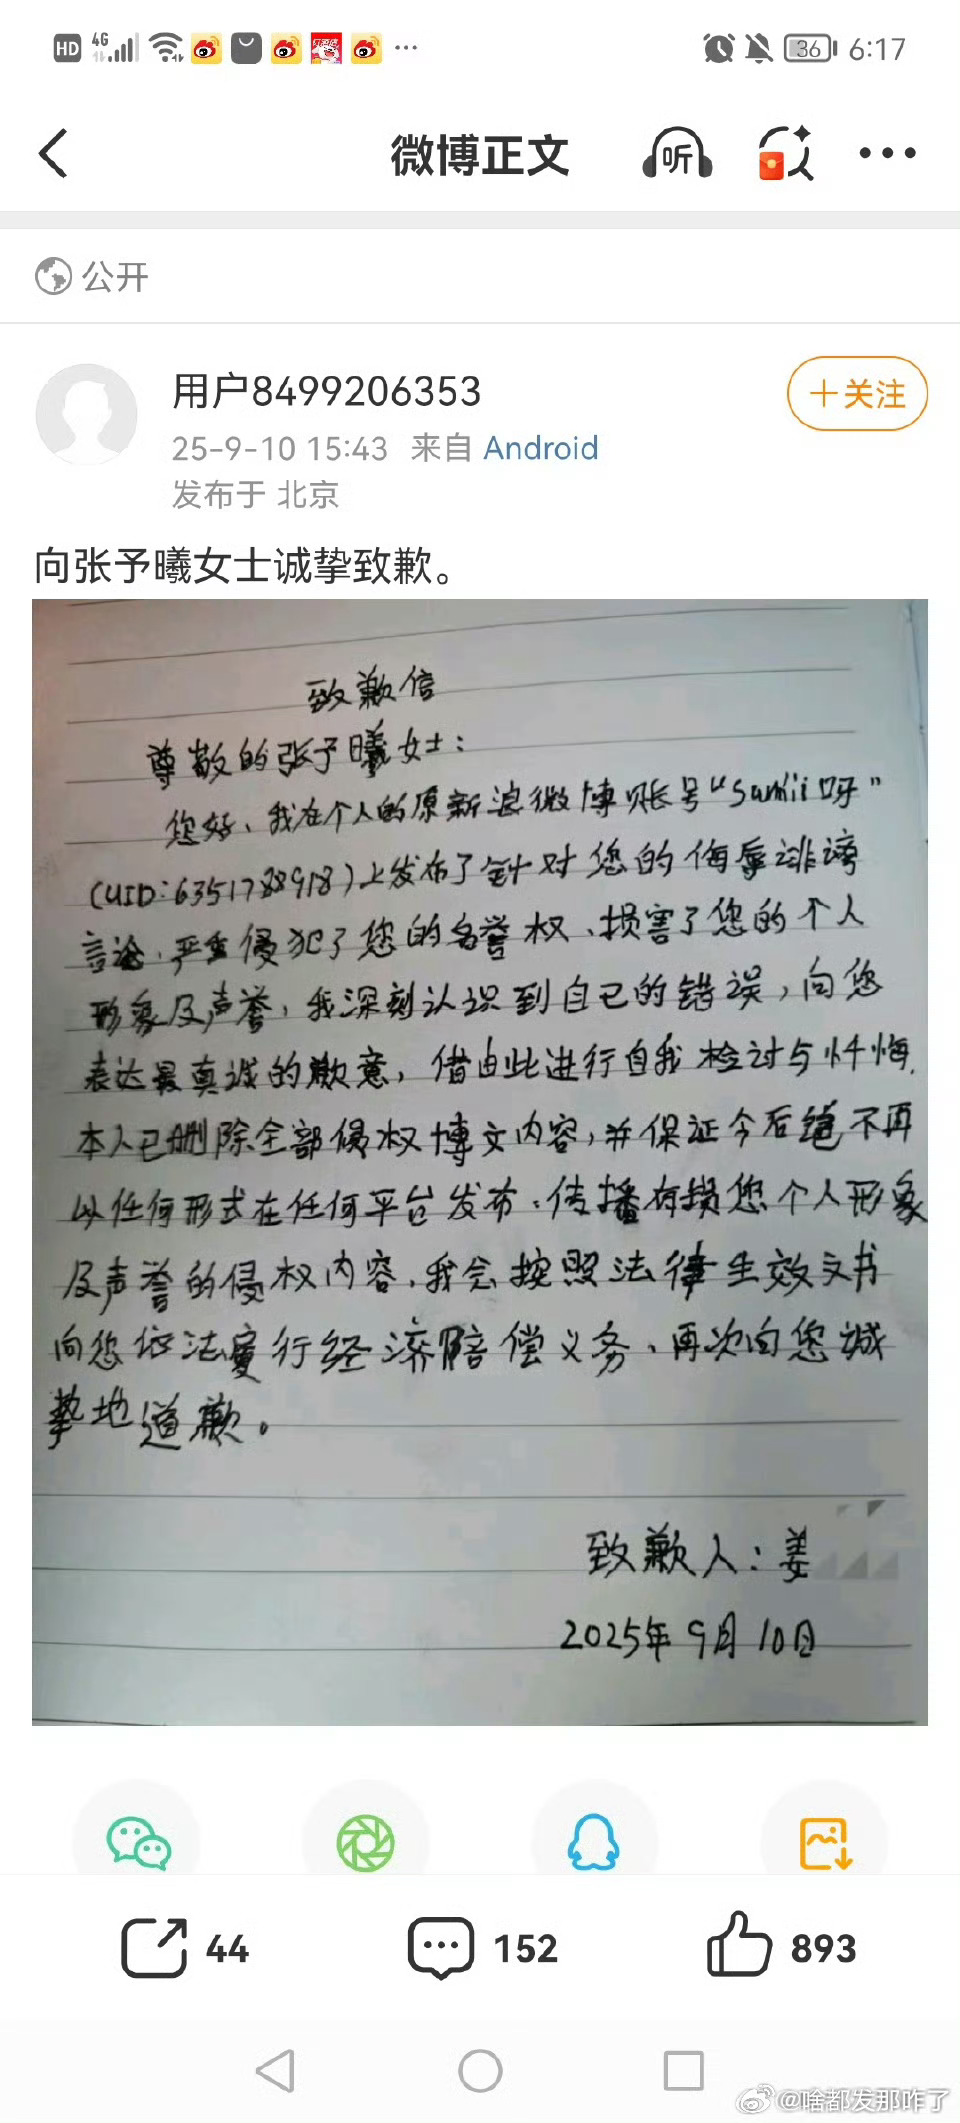 HD 4G 36 6:17
微博正文 听
公开
用户8499206353
+关注
25-9-10 15:43 来自 Android
发布于 北京
向张予曦女士诚挚致歉。
致歉信
尊敬的张予曦女士：
您好、我在个人的原新浪微博账号“Sumii呀”
(UID:6351788918)上发布了针对您的侮辱诽谤
言论，严重侵犯了您的名誉权、损害了您的个人
形象及声誉，我深刻认识到自己的错误，向您
表达最真诚的歉意，借由此进行自我检讨与忏悔.
本人已删除全部侵权博文内容，并保证今后绝不再
以任何形式在任何平台发布、传播有损您个人形象
及声誉的侵权内容，我会按照法律生效文书
向您依法履行经济赔偿义务、再次向您诚
挚地道歉。
致歉人：姜
2025年9月10日
44
152
893
@啥都发那咋了